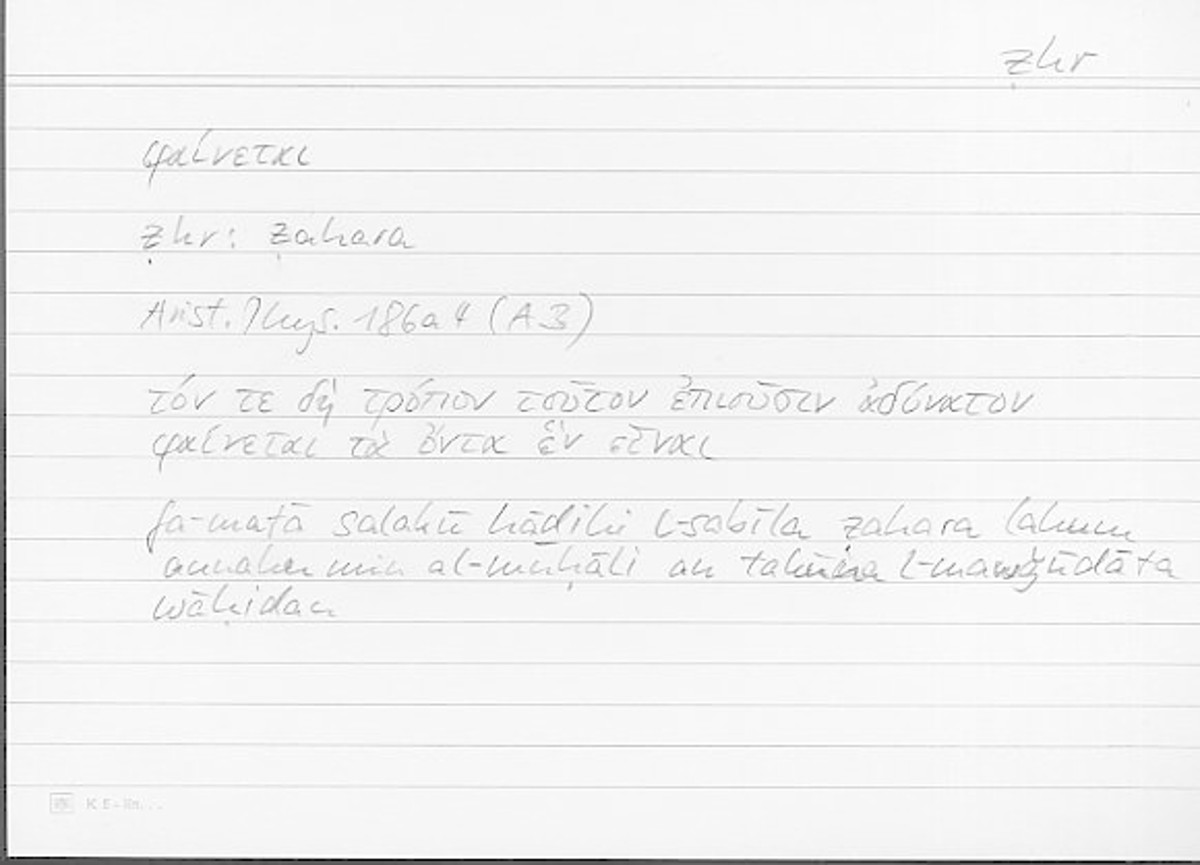 ẓhr
φαίνεται
ẓhr: ẓahara
Arist. Phys. 186a4 (A3)
τόν τε δὴ τρόπον τοῦτον ἐπιοῦσιν ἀδύνατον
φαίνεται τὰ ὄντα ἓν εἶναι
fa-matā salakū hāḏihi l-sabīla ẓahara lahum
annahu min al-muḥāli an takūna l-mawǧūdāta
wāḥidan